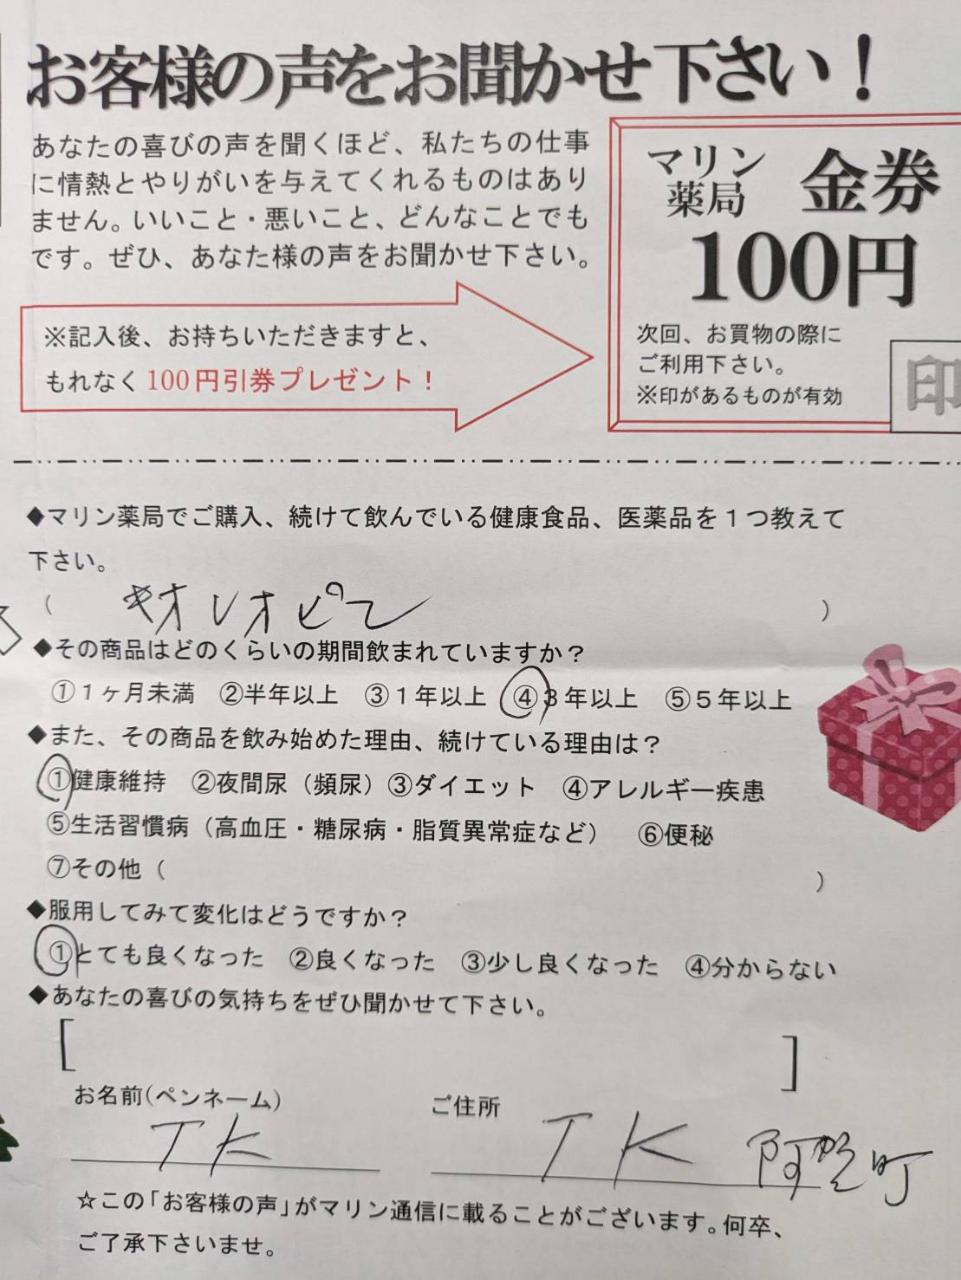 お客様の声をお聞かせ下さい！
あなたの喜びの声を聞くほど、私たちの仕事
に情熱とやりがいを与えてくれるものはあり
ません。いいこと・悪いこと、どんなことでも
です。ぜひ、あなた様の声をお聞かせ下さい。
※記入後、お持ちいただきますと、
もれなく100円引券プレゼント！
マリン薬局 金券
100円
次回、お買物の際に
ご利用下さい。
※印があるものが有効
印
◆マリン薬局でご購入、続けて飲んでいる健康食品、医薬品を１つ教えて
下さい。
（ キオレオピン ）
◆その商品はどのくらいの期間飲まれていますか？
①１ヶ月未満 ②半年以上 ③１年以上 ④３年以上 ⑤５年以上
◆また、その商品を飲み始めた理由、続けている理由は？
①健康維持 ②夜間尿（頻尿）③ダイエット ④アレルギー疾患
⑤生活習慣病（高血圧・糖尿病・脂質異常症など） ⑥便秘
⑦その他（ ）
◆服用してみて変化はどうですか？
①とても良くなった ②良くなった ③少し良くなった ④分からない
◆あなたの喜びの気持ちをぜひ聞かせて下さい。
[ ]
お名前(ペンネーム) ご住所
TK TK 町
☆この「お客様の声」がマリン通信に載ることがございます。何卒、
ご了承下さいませ。